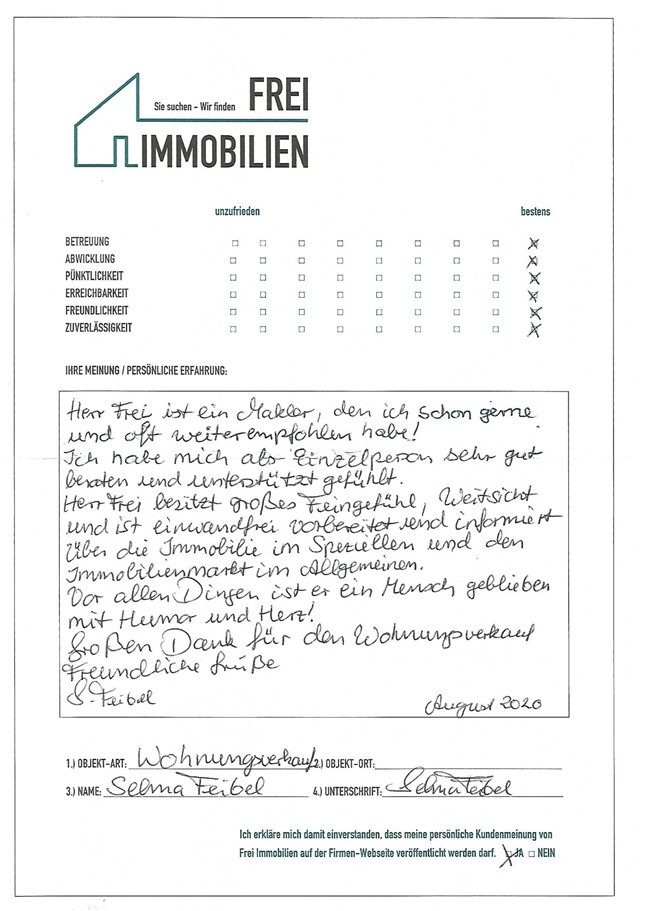 Sie suchen - Wir finden FREI
IMMOBILIEN
unzufrieden bestens
BETREUUNG
ABWICKLUNG
PÜNKTLICHKEIT
ERREICHBARKEIT
FREUNDLICHKEIT
ZUVERLÄSSIGKEIT
IHRE MEINUNG / PERSÖNLICHE ERFAHRUNG:
Herr Frei ist ein Makler, den ich schon gerne
und oft weiterempfohlen habe!
Ich habe mich als Einzelperson sehr gut
beraten und unterstützt gefühlt.
Herr Frei besitzt großes Feingefühl, Weitsicht
und ist einwandfrei vorbereitet und informiert
über die Immobilie im Speziellen und den
Immobilienmarkt im Allgemeinen.
Vor allen Dingen ist er ein Mensch geblieben
mit Humor und Herz!
Großen Dank für den Wohnungsverkauf
Freundliche Grüße
S. Feibel August 2020
1.) OBJEKT-ART: Wohnungsverkauf 2.) OBJEKT-ORT:
3.) NAME: Selma Feibel 4.) UNTERSCHRIFT: Selma Feibel
Ich erkläre mich damit einverstanden, dass meine persönliche Kundenmeinung von
Frei Immobilien auf der Firmen-Webseite veröffentlicht werden darf. JA NEIN